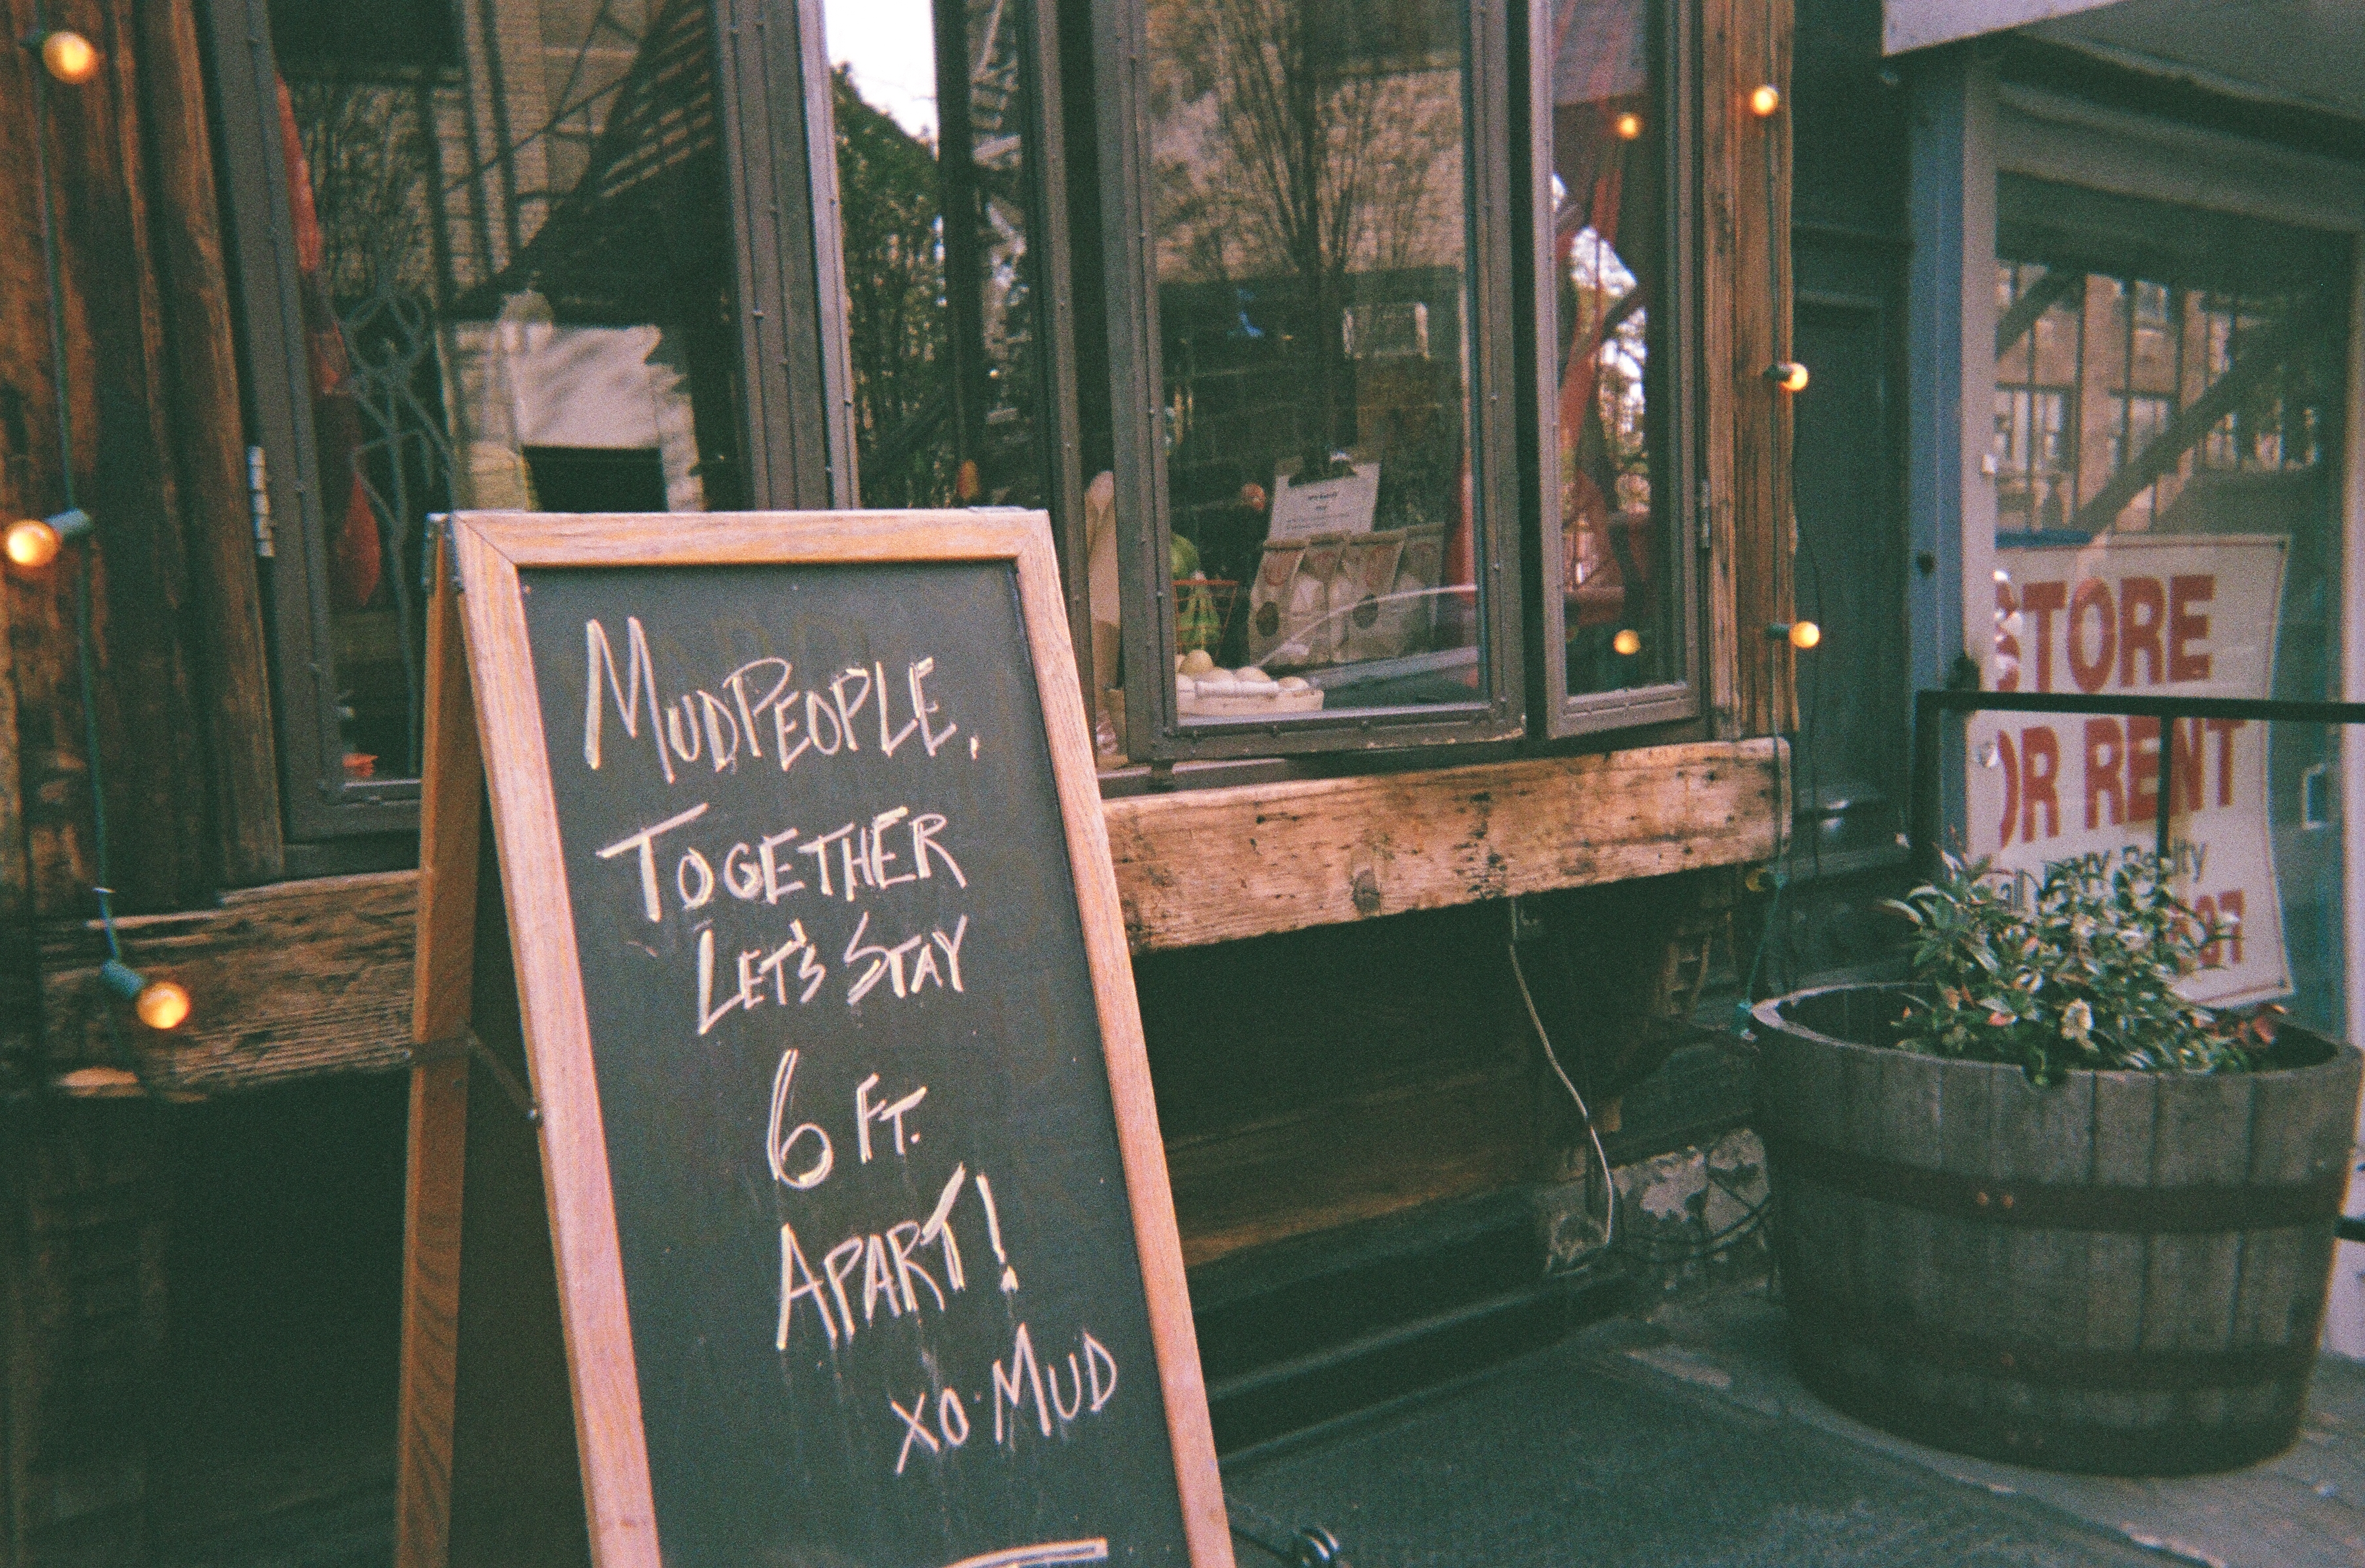 MUDPEOPLE,
TOGETHER
LET'S STAY
6 FT.
APART!
XO·MUD
STORE
OR RENT